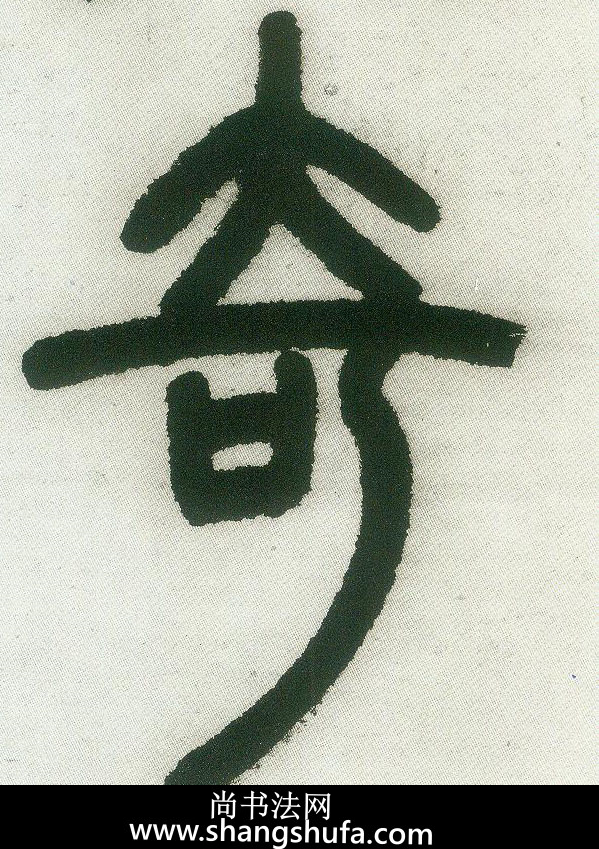 奇
尚书法网
www.shangshufa.com